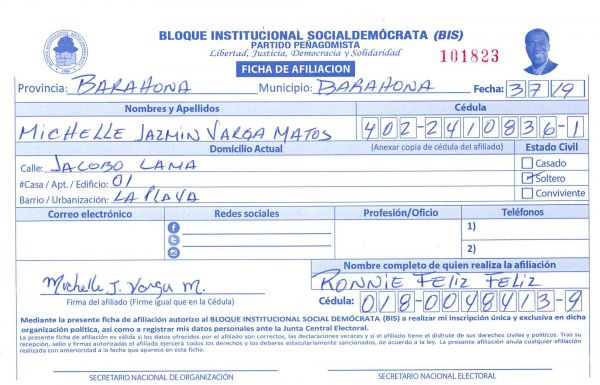 BLOQUE INSTITUCIONAL SOCIALDEMÓCRATA (BIS)
PARTIDO PEÑAGOMISTA
Libertad, Justicia, Democracia y Solidaridad
101823
FICHA DE AFILIACION
Provincia: BARAHONA Municipio: BARAHONA Fecha: 3/7/19
Nombres y Apellidos Cédula
MICHELLE JAZMIN VARGA MATOS 402-2410836-1
Domicilio Actual (Anexar copia de cédula del afiliado) Estado Civil
Calle: JACOBO LAMA Casado
#Casa / Apt. / Edificio: 01 Soltero
Barrio / Urbanización: LA PLAYA Conviviente
Correo electrónico Redes sociales Profesión/Oficio Teléfonos
1)
2)
Nombre completo de quien realiza la afiliación
Michelle J. Varga M. RONNIE FELIZ FELIZ
Firma del afiliado (Firme igual que en la Cédula) Cédula: 018-0048413-9
Mediante la presente ficha de afiliación autorizo al BLOQUE INSTITUCIONAL SOCIAL DEMÓCRATA (BIS) a realizar mi inscripción única y exclusiva en dicha
organización política, así como a registrar mis datos personales ante la Junta Central Electoral.
La presente ficha de afiliación es válida si los datos ofrecidos por el afiliado son correctos, las declaraciones veraces y si el afiliado tiene el disfrute de sus derechos civiles y políticos. Tras su
recepción, sello y firmas autorizadas el afiliado ejercerá todos los derechos y los deberes estatutariamente sancionados, de acuerdo a la ley. La presente afiliación anula cualquier afiliación
realizada con anterioridad a la fecha que aparece en esta ficha.
SECRETARIO NACIONAL DE ORGANIZACIÓN SECRETARIO NACIONAL ELECTORAL